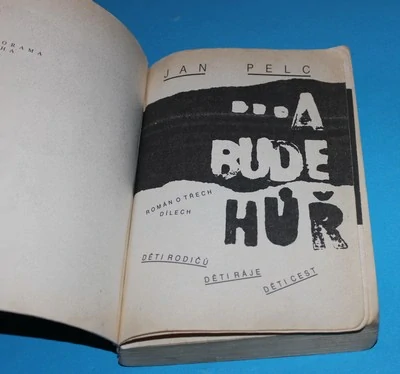 ORAMA
HA
JAN PELC
...A
BUDE
HŮŘ
ROMÁN O TŘECH
DÍLECH
DĚTI RODIČŮ
DĚTI RÁJE
DĚTI CEST